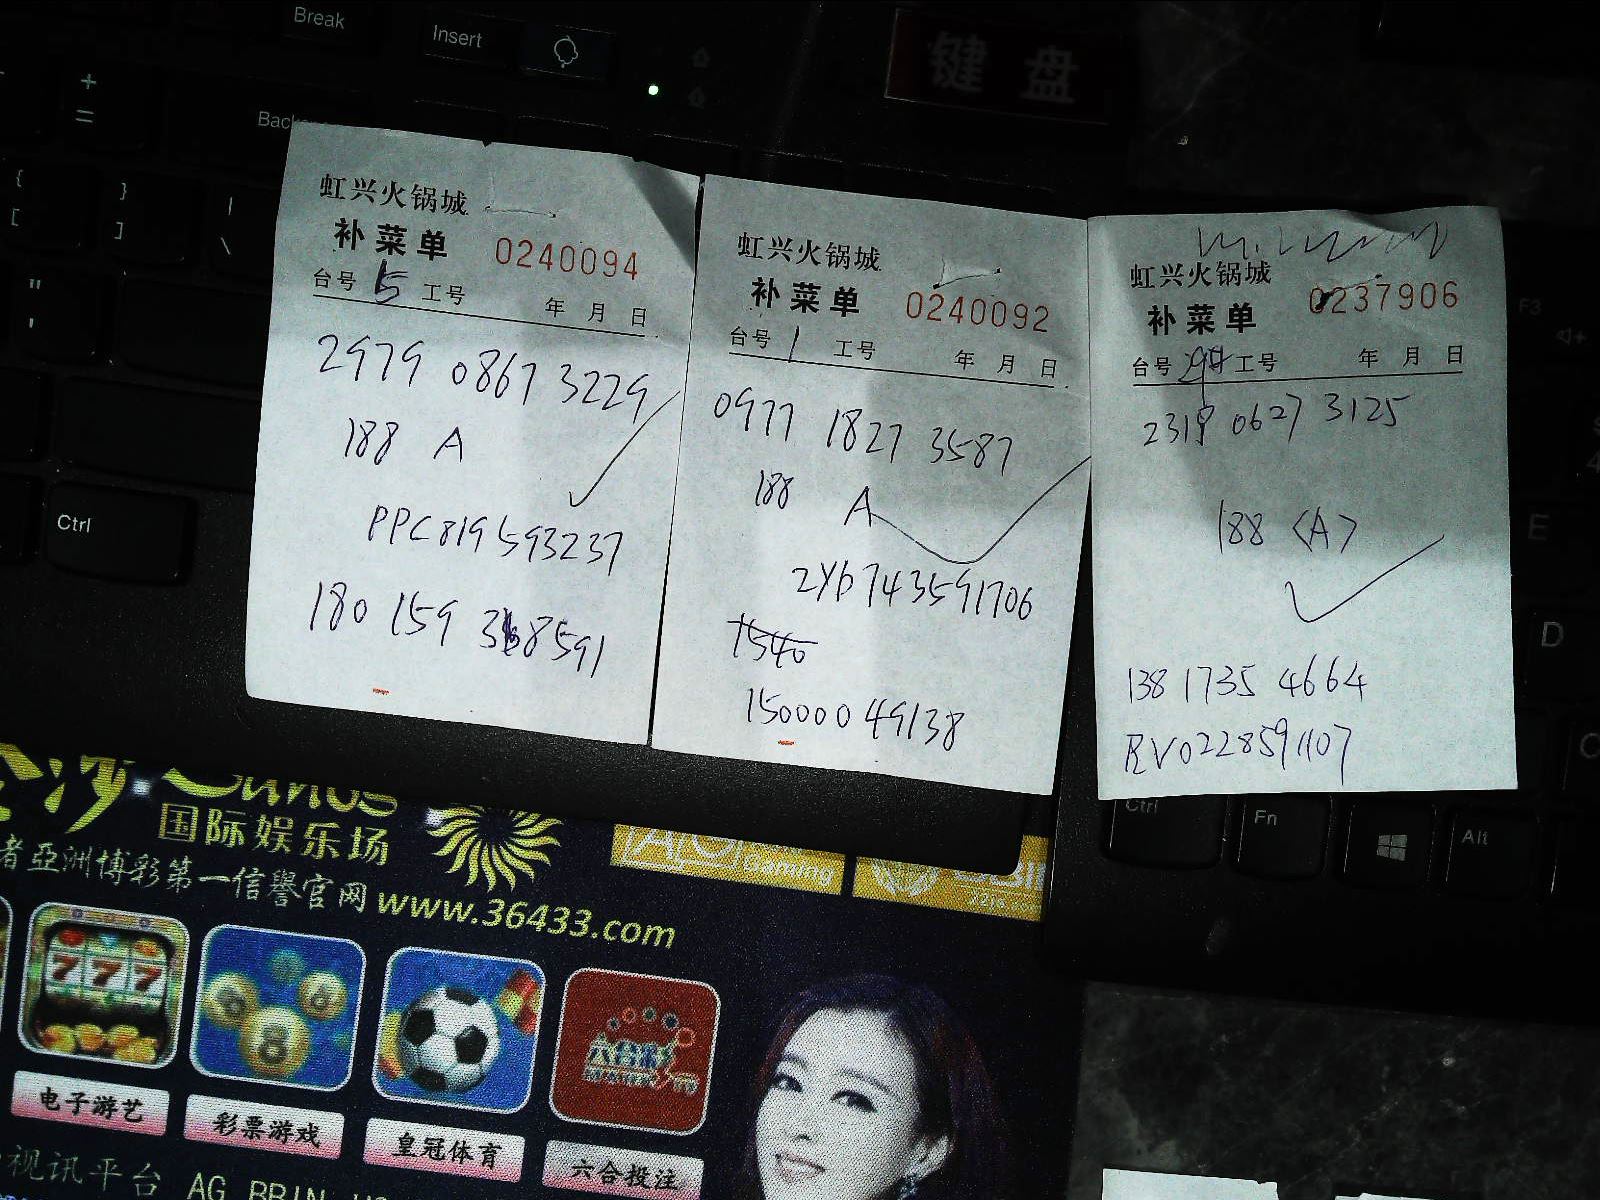 Break
Insert
键盘
+
=
{
[
}
]
|
\
"
'
Ctrl
虹兴火锅城
补菜单 0240094
台号 5 工号 年 月 日
2979 0867 3229
188 A
PPC819593237
180 159 8591
虹兴火锅城
补菜单 0240092
台号 1 工号 年 月 日
0977 1827 3587
188 A
2Yb743591706
1540
150000 49138
虹兴火锅城
补菜单 0237906
台号 工号 年 月 日
0627 3125
188 <A>
138 1735 4664
RV0228591107
F3
E
D
C
Ctrl
Fn
Alt
国际娱乐场
者亞洲博彩第一信譽官网 www.36433.com
Gaming
777
8
电子游艺
彩票游戏
皇冠体育
六合投注
视讯平台 AG BBIN